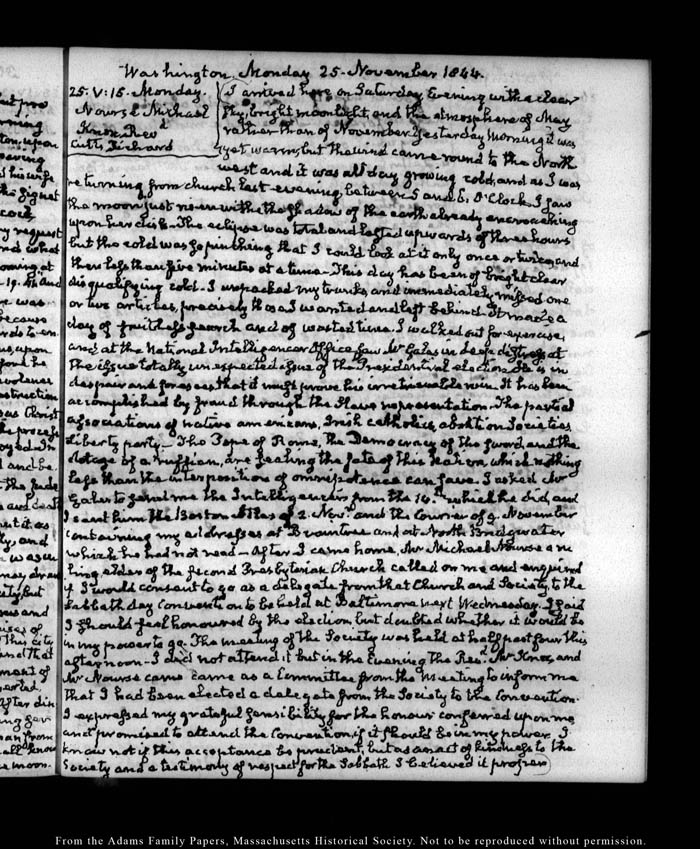 Washington, Monday 25. November 1844.
25. V:15. Monday.
Nourse Michael
Knox Revd
Cutts Richard
I arrived here on Saturday Evening with a clear
sky, bright moonlight, and the atmosphere of May
rather than of November. Yesterday morning it was
yet warm, but the wind came round to the North
west and it was all day growing cold, and as I was
returning from church last evening, between 5 and 6. O'Clock I saw
the moon just risen with the shadow of the earth already encroaching
upon her disk. The eclipse was total and lasted upwards of three hours
but the cold was so pinching that I could look at it only once or twice, and
then less than five minutes at a time. This day has been of bright clear
disqualifying cold. I unpacked my trunks and immediately missed one
or two articles, precisely those I wanted and left behind. It made a
day of fruitless search and of wasted time. I walked out for exercise,
and at the National Intelligencer Office saw Mr Gales in deep distress at
the issue totally unexpected of the Presidential election. He is in
despair and foresees that it must prove his irretrievable ruin. It has been
accomplished by fraud through the Slave representation. The partial
associations of native americans, Irish catholics, abolition Societies
liberty party — The Pope of Rome, the Democracy of the sword, and the
dotage of a ruffian, are sealing the fate of this Nation, which nothing
less than the interposition of omnipotence can save. I asked Mr
Gales to send me the Intelligencers from the 14th which he did, and
I sent him the Boston Atlas of 2. Novr and the Courier of 9. November
containing my addresses at Braintree and at North Bridgewater
which he had not read — After I came home, Mr Michael Nourse a ru
ling elder of the second Presbyterian Church called on me and enquired
if I would consent to go as a delegate from that Church and Society, to the
Sabbath day Convention to be held at Baltimore next Wednesday. I said
I should feel honoured by the election, but doubted whether it would be
in my power to go. The meeting of the Society was held at half past four this
afternoon — I did not attend it but in the Evening the Revd Mr Knox, and
Mr Nourse came came as a Committee from the Meeting to inform me
that I had been elected a delegate from the Society to the Convention.
I expressed my grateful sensibility for the honour conferred upon me
and promised to attend the Convention, if it should be in my power. I
know not if this acceptance be prudent, but as an act of kindness to the
Society and a testimony of respect for the Sabbath I believed it proper
From the Adams Family Papers, Massachusetts Historical Society. Not to be reproduced without permission.